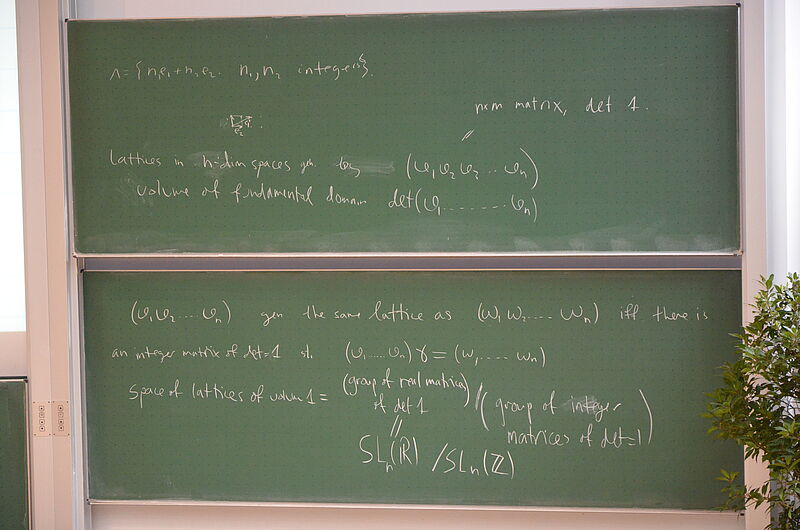 Λ = {n₁e₁+n₂e₂. n₁, n₂ integers}.
nxn matrix, det 1.
e₂
Lattices in n-dim spaces gen. by (v₁ v₂ v₃ .. vₙ)
volume of fundamental domain det(v₁ ........ vₙ)
(v₁ v₂ .... vₙ) gen the same lattice as (w₁ w₂ .... wₙ) iff there is
an integer matrix of det=1 st. (v₁ ..... vₙ) γ = (w₁, .... wₙ)
Space of lattices of volume 1 = (group of real matrices of det 1) / (group of integer matrices of det=1)
SLₙ(ℝ) / SLₙ(ℤ)